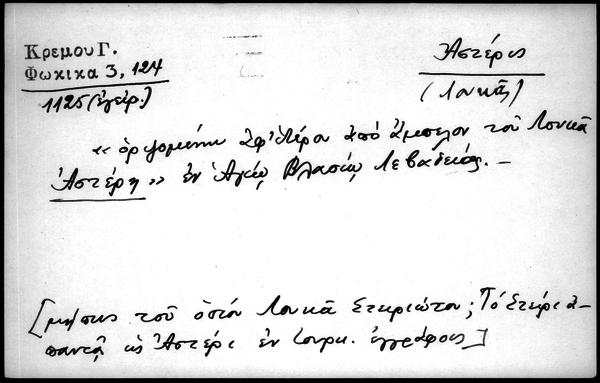 Κρεμου Γ.
Φωκικα 3, 124
1125 (ἐγείρ.)
Ἀστέρις
(Λουκᾶς)
ἀπὸ ἄμπελον τοῦ Λουκᾶ
Ἀστέρη» ἐν Ἁγίῳ Βλασίῳ Λεβαδείας. –
[μήπως τοῦ ὁσίου Λουκᾶ Στειριώτου; Τὸ Στείρι ἀ-
παντᾷ ὡς Ἀστέρι ἐν τουρκ. ἐγγράφοις]